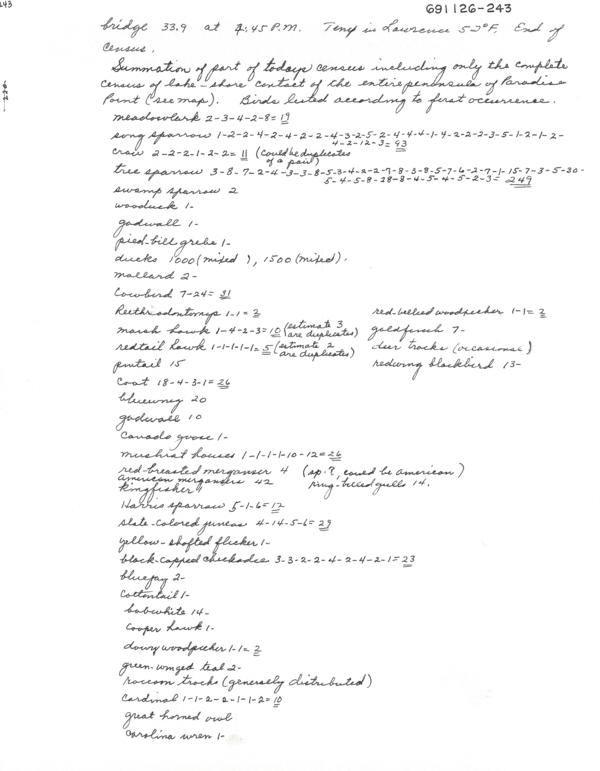 243
691126-243
bridge 33.9 at 4:45 P.M. Temp in Lawrence 52°F. End of
census.
Summation of part of todays census including only the complete
census of lake-shore contact of the entire peninsula of Paradise
Point (see map). Birds listed according to first occurrence.
meadowlark 2-3-4-2-8=19
song sparrow 1-2-2-4-2-4-2-2-4-3-2-5-2-4-4-4-1-4-2-2-2-3-5-1-2-1-2-
4-2-12-3=93
crow 2-2-2-1-2-2=11 (could be duplicates
of a pair)
tree sparrow 3-8-7-2-4-3-3-8-5-3-4-2-2-7-8-3-8-5-7-6-2-7-1-15-7-3-5-30-
5-4-5-8-28-8-4-5-4-5-2-3=249
swamp sparrow 2
woodduck 1-
gadwall 1-
pied-bill grebe 1-
ducks 1000 (mixed), 1500 (mixed).
mallard 2-
Cowbird 7-24=31
Reithrodontomys 1-1=2 red-bellied woodpecker 1-1=2
marsh hawk 1-4-2-3=10 (estimate 3 are duplicates) goldfinch 7-
redtail hawk 1-1-1-1-1=5 (estimate 2 are duplicates) deer tracks (occasional)
pintail 15 redwing blackbird 13-
Coot 18-4-3-1=26
bluewing 20
gadwall 10
Canada goose 1-
muskrat houses 1-1-1-1-10-12=26
red-breasted merganser 4 (sp.?, could be american)
american mergansers 42 ring-billed gulls 14.
Kingfisher
Harris sparrow 5-1-6=12
slate-colored juncos 4-14-5-6=29
yellow-shafted flicker 1-
black-capped chickadee 3-3-2-2-4-2-4-2-1=23
bluejay 2-
Cottontail 1-
bobwhite 14-
Cooper hawk 1-
downy woodpecker 1-1=2
green-winged teal 2-
raccoon tracks (generally distributed)
Cardinal 1-1-2-2-1-1-2=10
great horned owl
Carolina wren 1-